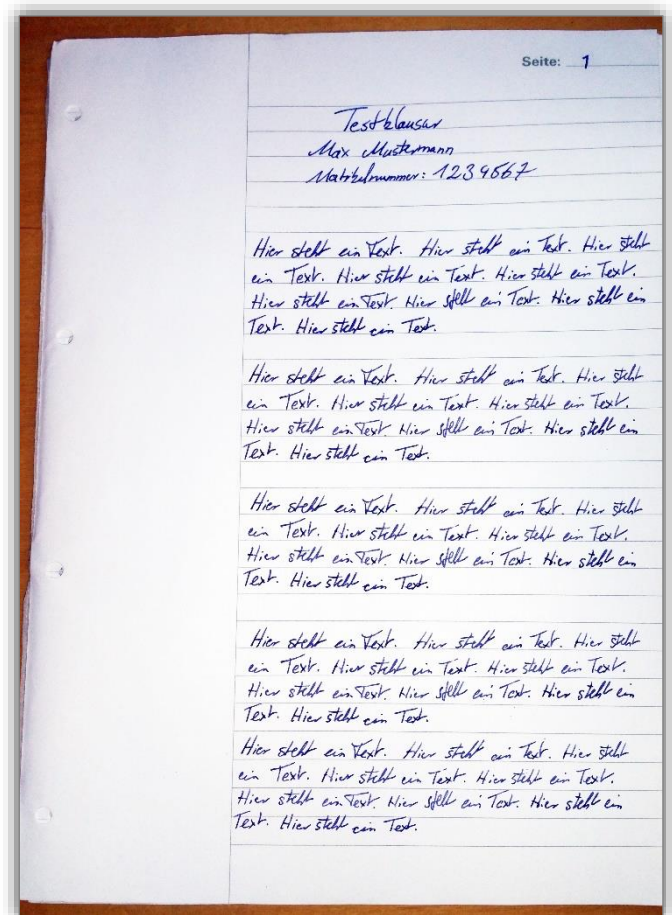 Seite: 1
Testklausur
Max Mustermann
Matrikelnummer: 1234567
Hier steht ein Text. Hier steht ein Text. Hier steht
ein Text. Hier steht ein Text. Hier steht ein Text.
Hier steht ein Text. Hier steht ein Text. Hier steht ein
Text. Hier steht ein Text.
Hier steht ein Text. Hier steht ein Text. Hier steht
ein Text. Hier steht ein Text. Hier steht ein Text.
Hier steht ein Text. Hier steht ein Text. Hier steht ein
Text. Hier steht ein Text.
Hier steht ein Text. Hier steht ein Text. Hier steht
ein Text. Hier steht ein Text. Hier steht ein Text.
Hier steht ein Text. Hier steht ein Text. Hier steht ein
Text. Hier steht ein Text.
Hier steht ein Text. Hier steht ein Text. Hier steht
ein Text. Hier steht ein Text. Hier steht ein Text.
Hier steht ein Text. Hier steht ein Text. Hier steht ein
Text. Hier steht ein Text.
Hier steht ein Text. Hier steht ein Text. Hier steht
ein Text. Hier steht ein Text. Hier steht ein Text.
Hier steht ein Text. Hier steht ein Text. Hier steht ein
Text. Hier steht ein Text.